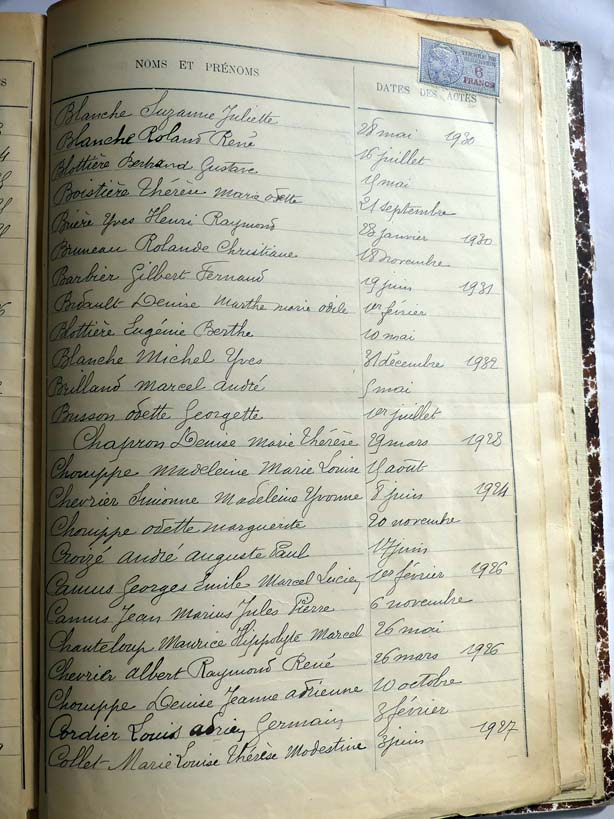 NOMS ET PRÉNOMS
DATES DES ACTES
6 FRANCS
Blanche Suzanne Juliette 28 mai 1930
Blanche Roland René 16 juillet
Blottière Bertrand Gustave 15 mai
Boistière Thérèse Marie Odette 21 septembre
Brière Yves Henri Raymond 28 janvier 1930
Bruneau Rolande Christiane 18 novembre
Barbier Gilbert Fernand 19 juin 1931
Bidault Denise Marthe marie odile 1er février
Blottière Eugénie Berthe 10 mai
Blanche Michel Yves 31 décembre 1932
Brilland Marcel André 5 mai
Busson Odette Georgette 1er juillet
Chapron Denise Marie Thérèse 29 mars 1928
Chouippe Madeleine Marie Louise 15 août
Chevrier Simonne Madeleine Yvonne 8 juin 1924
Chouippe odette marguerite 20 novembre
Croizé andré auguste Paul 17 juin
Camus Georges Emile Marcel Lucien 1er février 1926
Camus Jean Marius Jules Pierre 6 novembre
Chanteloup Maurice Hippolyte Marcel 26 mai
Chevrier albert Raymond René 26 mars 1926
Chouippe Denise Jeanne adrienne 10 octobre
Cordier Louis Germain 3 février
Collet Marie Louise Thérèse Modestine 3 juin 1927